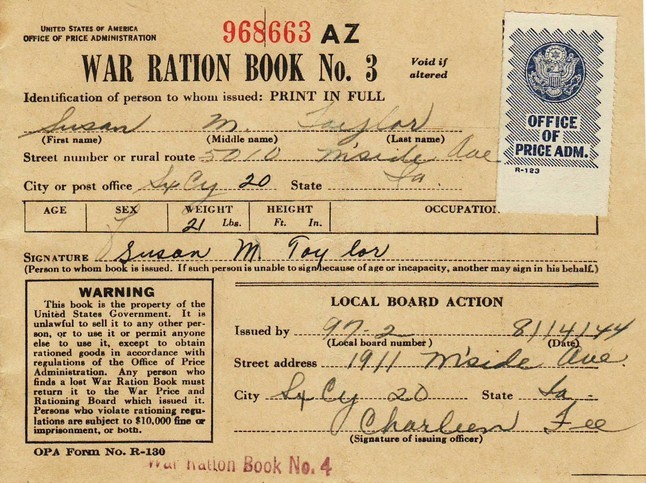 UNITED STATES OF AMERICA
OFFICE OF PRICE ADMINISTRATION
968663 AZ
WAR RATION BOOK No. 3
Void if
altered
Identification of person to whom issued: PRINT IN FULL
Susan M. Taylor
(First name) (Middle name) (Last name)
Street number or rural route 5010 M'side Ave
City or post office Sx Cy 20 State Ia.
OFFICE
OF
PRICE ADM.
R-123
AGE SEX WEIGHT HEIGHT OCCUPATION
F 21 Lbs. Ft. In.
SIGNATURE Susan M Taylor
(Person to whom book is issued. If such person is unable to sign because of age or incapacity, another may sign in his behalf.)
WARNING
This book is the property of the
United States Government. It is
unlawful to sell it to any other per-
son, or to use it or permit anyone
else to use it, except to obtain
rationed goods in accordance with
regulations of the Office of Price
Administration. Any person who
finds a lost War Ration Book must
return it to the War Price and
Rationing Board which issued it.
Persons who violate rationing regu-
lations are subject to $10,000 fine or
imprisonment, or both.
OPA Form No. R-130
LOCAL BOARD ACTION
Issued by 97-2 8/14/44
(Local board number) (Date)
Street address 1911 M'side Ave.
City Sx Cy 20 State Ia.
Charleen Fee
(Signature of issuing officer)
War Ration Book No. 4